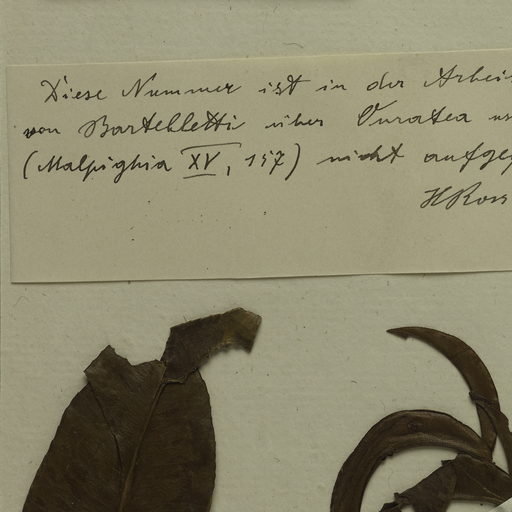 Diese Nummer ist in der Arbei
von Bartelletti über Ouratea us
(Malpighia XV, 157) nicht aufge
H Ross